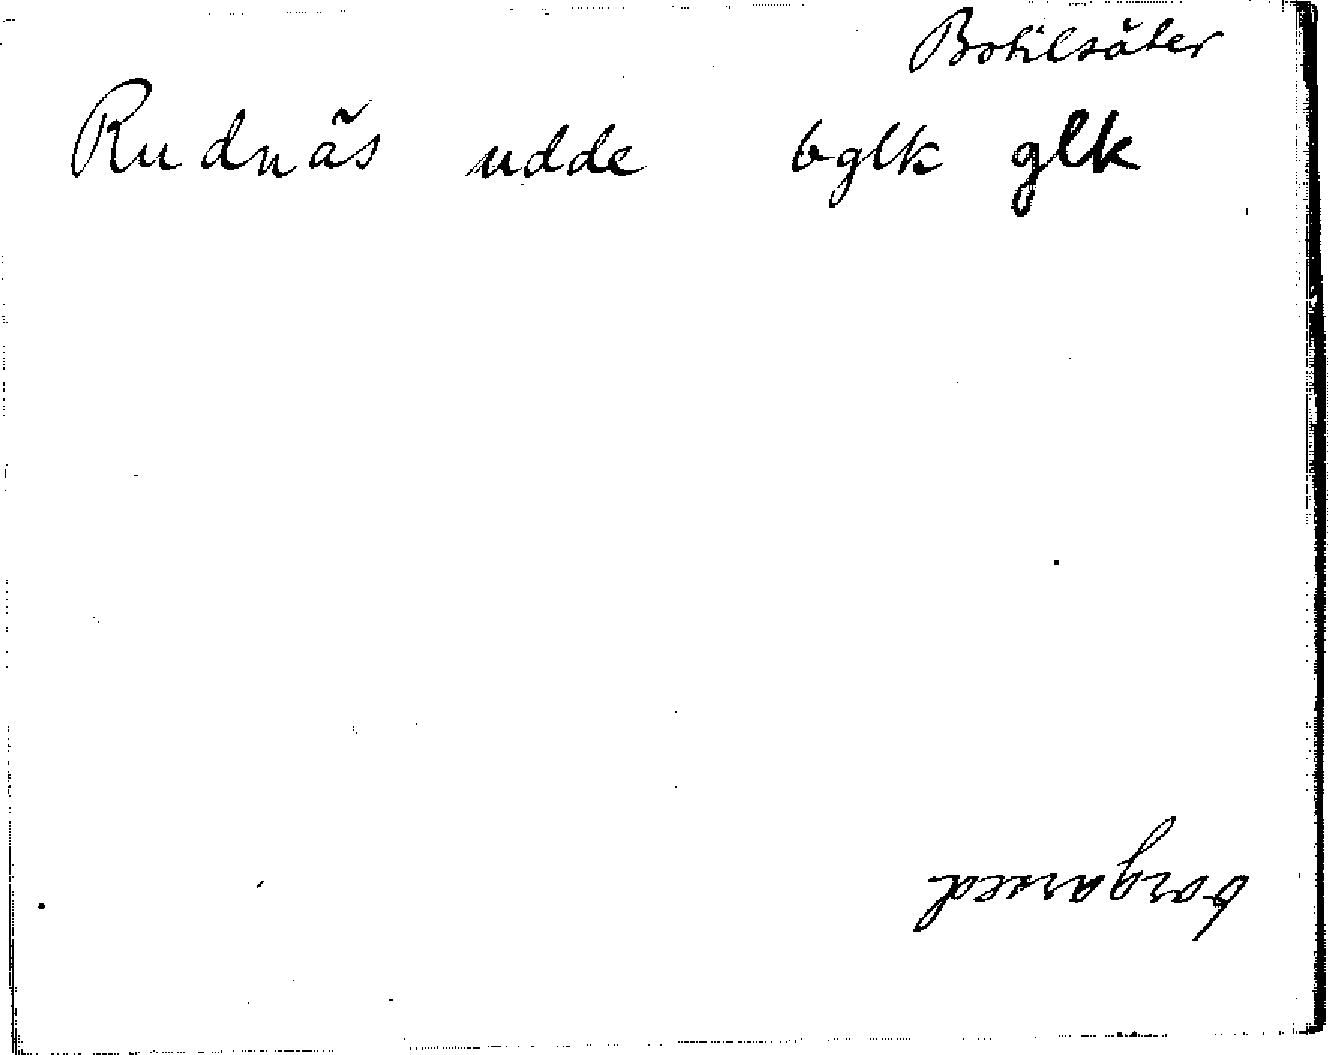 Botilsäter
Rudnäs udde bglk glk
borgarsed